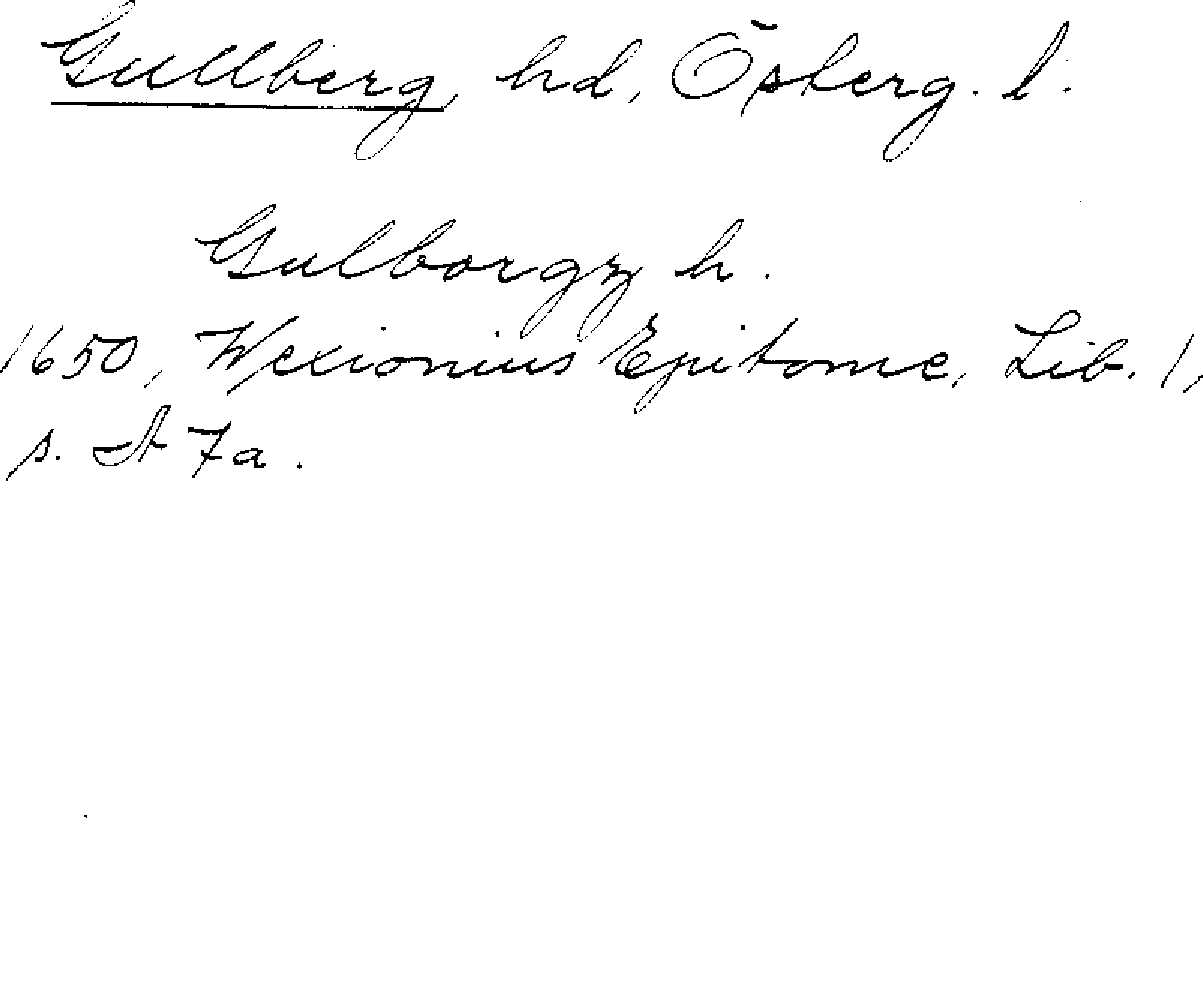 Gullberg, hd, Österg. l.
Gulborgz h.
1650, Wexionius Epitome, Lib. 1,
s. 7a.